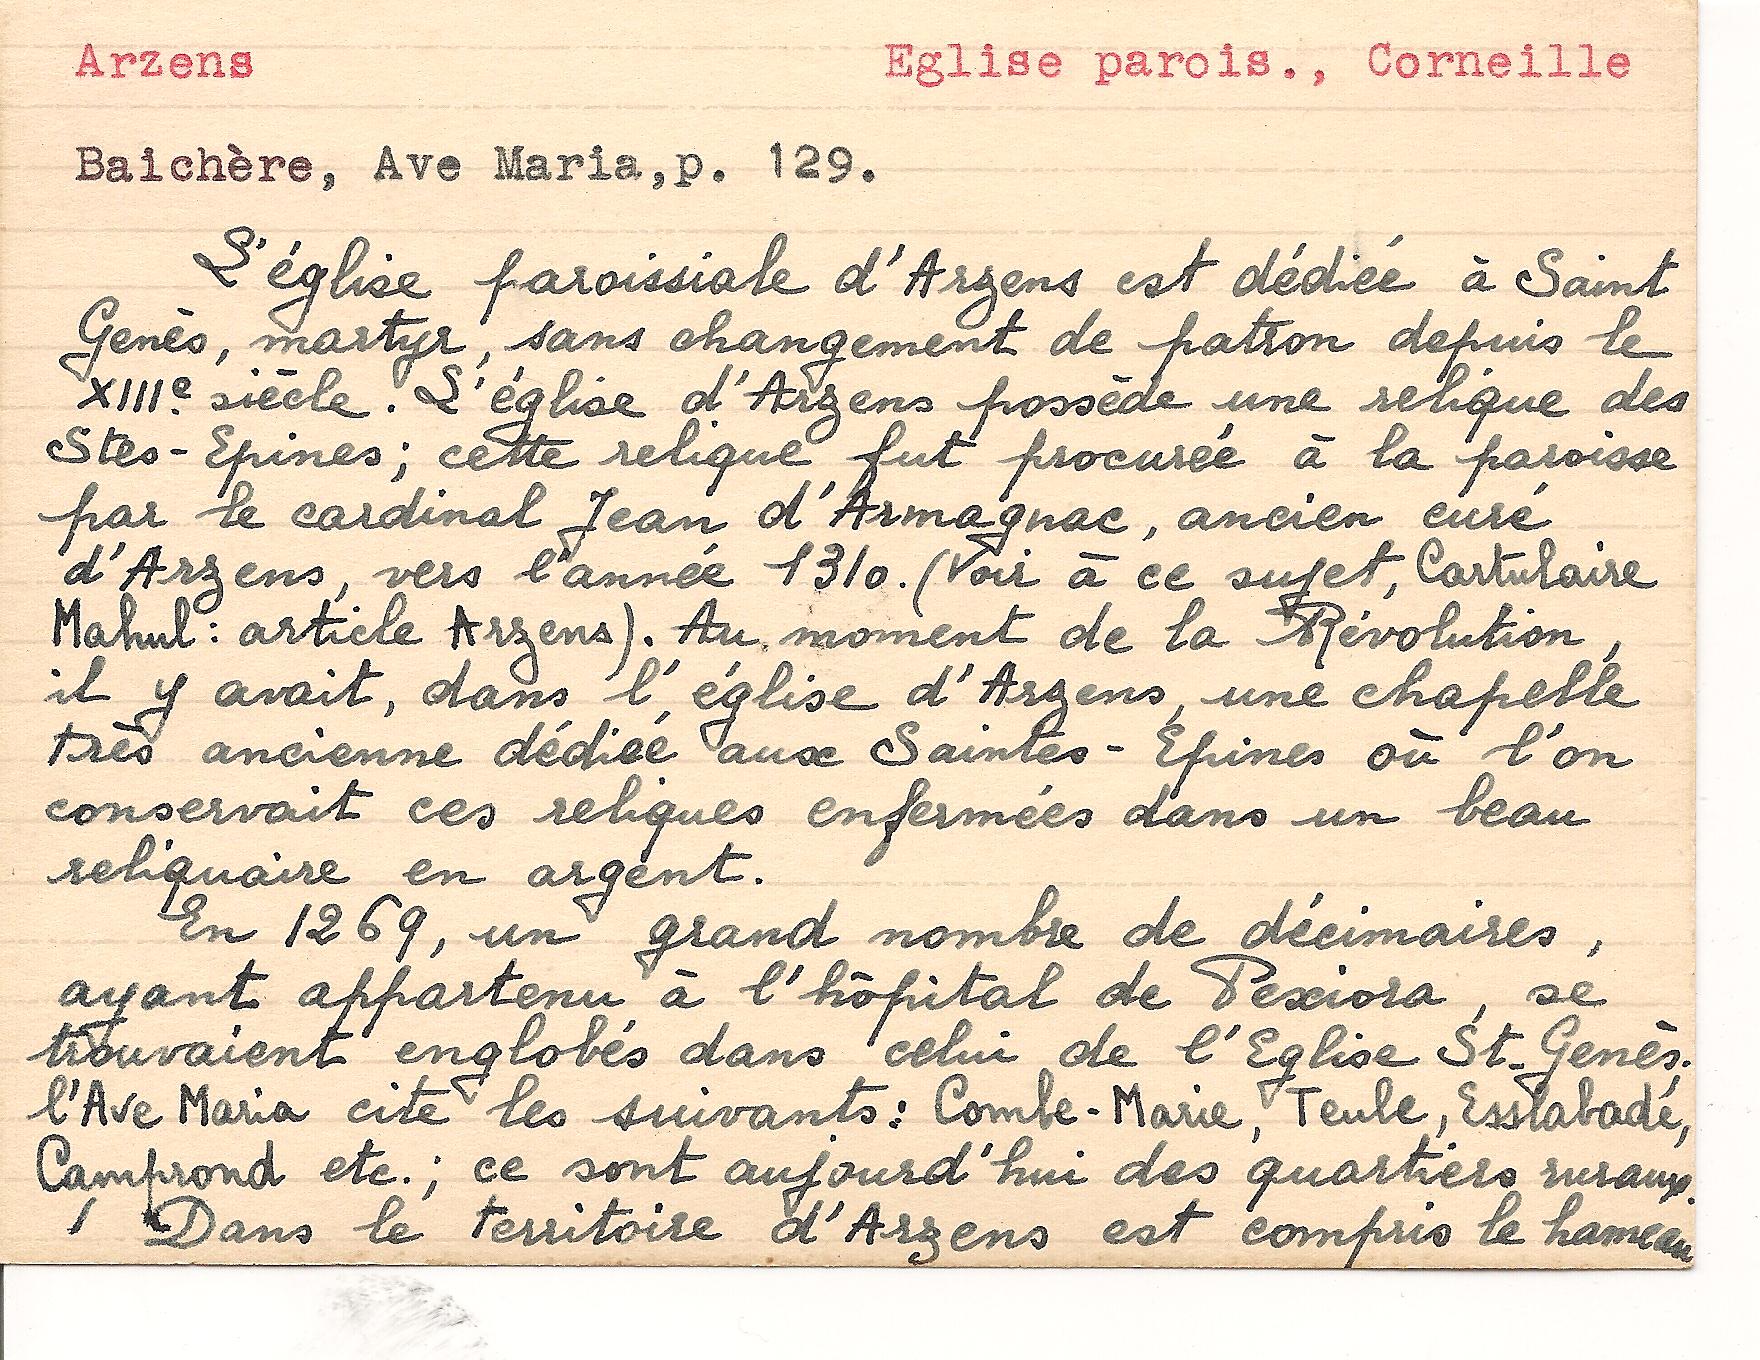 Arzens Eglise parois., Corneille
Baichère, Ave Maria,p. 129.
L'église paroissiale d'Arzens est dédiée à Saint
Genès, martyr, sans changement de patron depuis le
XIIIe siècle. L'église d'Arzens possède une relique des
Stes-Epines; cette relique fut procurée à la paroisse
par le cardinal Jean d'Armagnac, ancien curé
d'Arzens, vers l'année 1310. (Voir à ce sujet, Cartulaire
Mahul: article Arzens). Au moment de la Révolution,
il y avait, dans l'église d'Arzens, une chapelle
très ancienne dédiée aux Saintes-Epines où l'on
conservait ces reliques enfermées dans un beau
reliquaire en argent.
En 1269, un grand nombre de décimaires,
ayant appartenu à l'hôpital de Pexiora, se
trouvaient englobés dans celui de l'Eglise St-Genès.
l'Ave Maria cite les suivants: Combe-Marie, Teule, Esslabadé,
Camprond etc.; ce sont aujourd'hui des quartiers ruraux.
Dans le territoire d'Arzens est compris le hameau